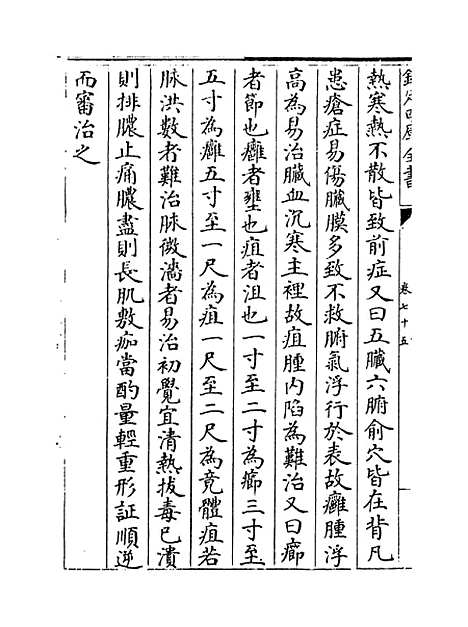 欽定四庫全書
卷七十五
熱寒熱不散皆致前症又曰五臟六腑俞穴皆在背凡
患瘡症易傷臟膜多致不救腑氣浮行於表故癰腫浮
高為易治臟血沉寒主裡故疽腫内陷為難治又曰癤
者節也癰者壅也疽者沮也一寸至二寸為癤三寸至
五寸為癰五寸至一尺為疽一尺至二尺為竟體疽若
脉洪數者難治脉微濇者易治初覺宜清熱拔毒已潰
則排膿止痛膿盡則長肌敷痂當酌量輕重形証順逆
而審治之